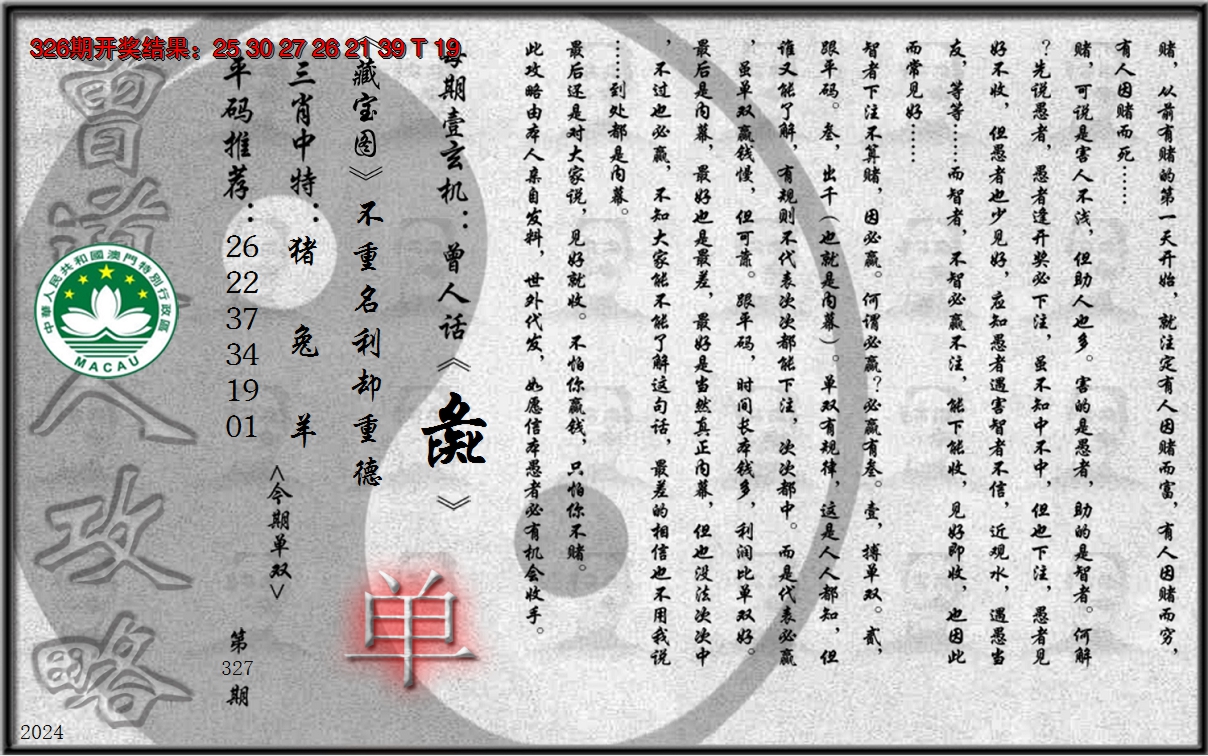 326期开奖结果：25 30 27 26 21 39 T 19
赌，从前有赌的第一天开始，就注定有人因赌而富，有人因赌而穷，
有人因赌而死……
赌，可说是害人不浅，但助人也多。害的是愚者，助的是智者。何解
？先说愚者，愚者逢开奖必下注，虽不知中不中，但也下注，愚者见
好不收，但愚者也少见好，应知愚者遇害智者不信，近观水，遇愚当
友，等等……而智者，不智必赢不注，能下能收，见好即收，也因此
而常见好……
智者下注不算赌，因必赢。何谓必赢？必赢有叁。壹，搏单双。贰，
跟平码。叁，出千（也就是内幕）。单双有规律，这是人人都知，但
谁又能了解，有规则不代表次次都能下注，次次都中。而是代表必赢
，虽单双赢钱慢，但可靠。跟平码，时间长本钱多，利润比单双好。
最后是内幕，最好也是最差，最好是当然真正内幕，但也没法次次中
，不过也必赢，不知大家能不能了解这句话，最差的相信也不用我说
……到处都是内幕。
最后还是对大家说，见好就收。不怕你赢钱，只怕你不赌。
此攻略由本人亲自发料，世外代发，如愿信本愚者必有机会收手。
每期壹玄机：曾人话《彘》
《藏宝图》不重名利却重德
三肖中特：猪 兔 羊
平码推荐：26 22 37 34 19 01
<今期单双>
单
第327期
曾道人攻略
中華人民共和國澳門特別行政區
MACAU
2024